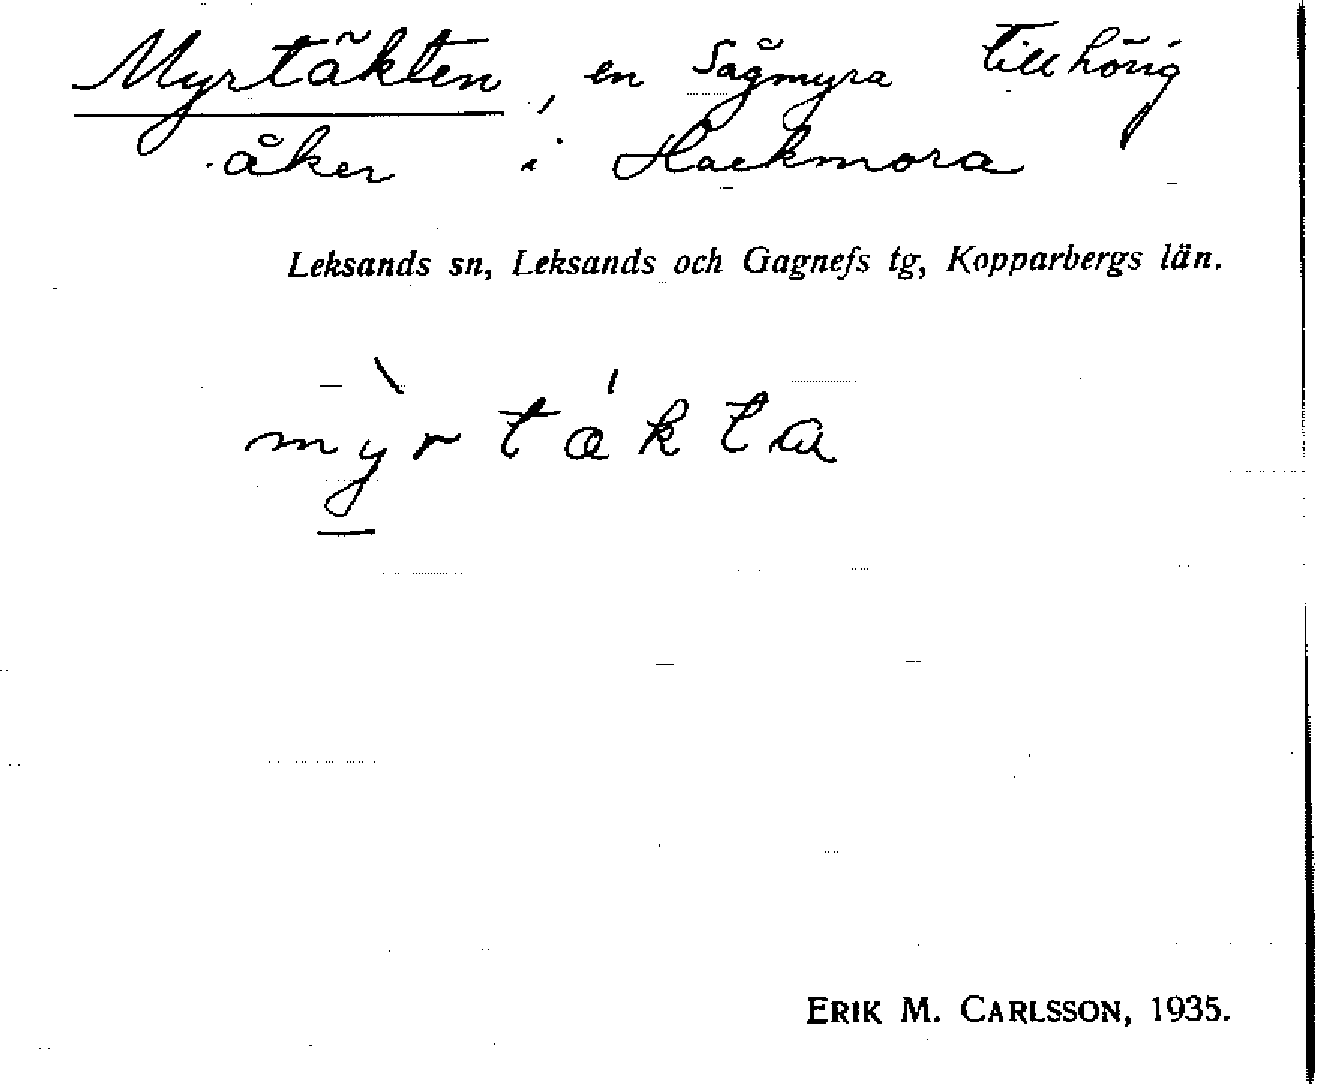 Myrtäkten, en Sågmyra tillhörig
åker i Hackmora
Leksands sn, Leksands och Gagnefs tg, Kopparbergs län.
mỳ̲rtákta
ERIK M. CARLSSON, 1935.